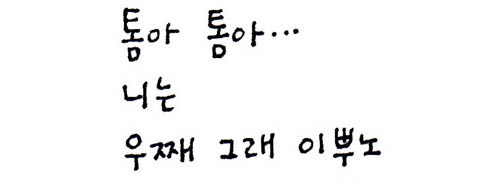 톰아 톰아...
니는
우째 그래 이뿌노